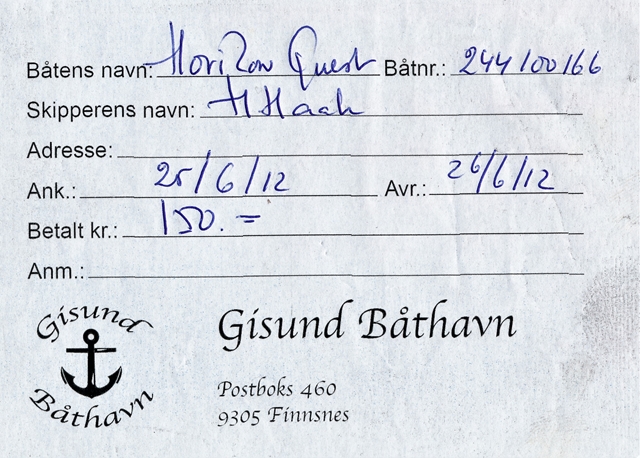 Båtens navn: HoriZon Quest Båtnr.: 244100166
Skipperens navn: H Haak
Adresse:
Ank.: 25/6/12 Avr.: 26/6/12
Betalt kr.: 150.=
Anm.:
Gisund
Båthavn
Gisund Båthavn
Postboks 460
9305 Finnsnes